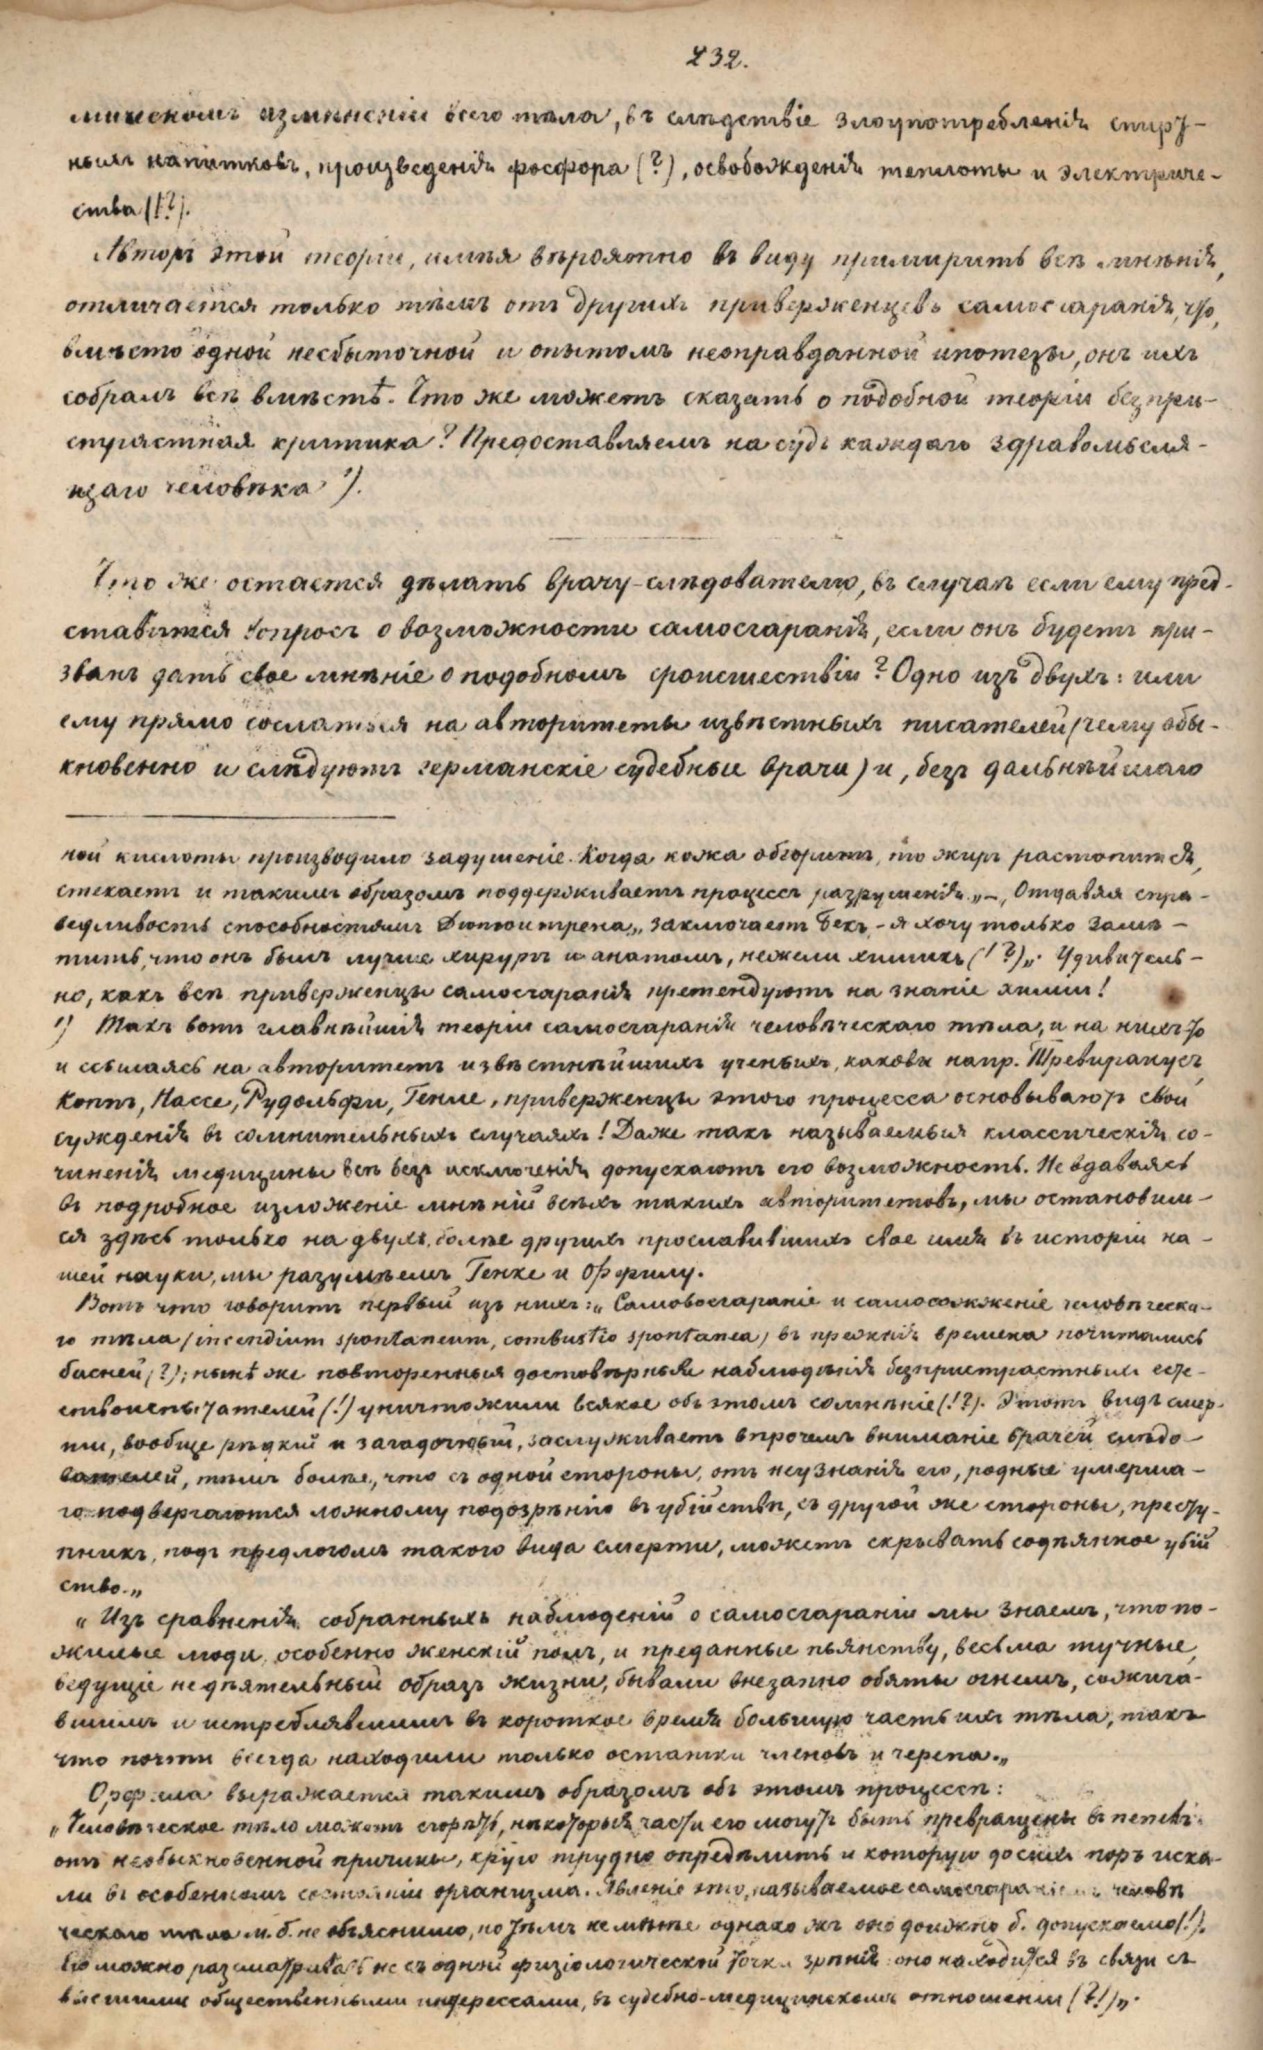 232.
мическомъ измѣненіи всего тѣла, въ слѣдствіе злоупотребленія спирт-
ныхъ напитковъ, произведенія фосфора (?), освобожденія теплоты и электриче-
ства (!?).
Авторъ этой теоріи, имѣя вѣроятно въ виду примирить всѣ мнѣнія,
отличается только тѣмъ отъ другихъ приверженцевъ самосгаранія, что,
вмѣсто одной несбыточной и опытомъ неоправданной ипотезы, онъ ихъ
собралъ всѣ вмѣстѣ. Что же можетъ сказать о подобной теоріи безпри-
страстная критика? Предоставляемъ на судъ каждаго здравомысля-
щаго человѣка ¹).
Что же остается дѣлать врачу-слѣдователю, въ случаѣ если ему пред-
ставится вопросъ о возможности самосгаранія, если онъ будетъ при-
званъ дать свое мнѣніе о подобномъ происшествіи? Одно изъ двухъ: или
ему прямо сослаться на авторитеты извѣстныхъ писателей (чему обы-
кновенно и слѣдуютъ германскіе судебные врачи) и, безъ дальнѣйшаго
ной кислоты производило задушеніе. Когда кожа обгоритъ, то жиръ растопится,
стекаетъ и такимъ образомъ поддерживаетъ процессъ разрушенія.„ —, Отдавая спра-
ведливость способностямъ Дюпюитрена„ заключаетъ Бекъ, - я хочу только замѣ-
тить, что онъ былъ лучше хирургъ и анатомъ, нежели химикъ (!?)„. Удивитель-
но, какъ всѣ приверженцы самосгаранія претендуютъ на знаніе химіи!
¹) Такъ вотъ главнѣйшія теоріи самосгаранія человѣческаго тѣла, и на нихъ-то
и ссылаясь на авторитетъ извѣстнѣйшихъ ученыхъ, каковы напр. Тревиранусъ,
Коппъ, Нассе, Рудольфи, Генле, приверженцы этого процесса основываютъ свои
сужденія въ сомнительныхъ случаяхъ! Даже такъ называемыя классическія со-
чиненія медицины всѣ безъ исключенія допускаютъ его возможность. Не вдаваясь
въ подробное изложеніе мнѣній всѣхъ такихъ авторитетовъ, мы остановим-
ся здѣсь только на двухъ, болѣе другихъ прославившихъ свое имя въ исторіи на-
шей науки, мы разумѣемъ Генке и Орфилу.
Вотъ что говоритъ первый изъ нихъ: „Самовозгараніе и самосожженіе человѣческа-
го тѣла (incendium spontaneum, combustio spontanea) въ прежнія времена почитались
басней (?); нынѣ же повторенныя достовѣрныя наблюденія безпристрастныхъ есте-
ствоиспытателей (!) уничтожили всякое объ этомъ сомнѣніе (!?). Этотъ видъ смер-
ти, вообще рѣдкій и загадочный, заслуживаетъ впрочемъ вниманіе врачей слѣдо-
вателей, тѣмъ болѣе, что съ одной стороны, отъ неузнанія его, родные умерша-
го подвергаются ложному подозрѣнію въ убійствѣ, съ другой же стороны, престу-
пникъ, подъ предлогомъ такого вида смерти, можетъ скрывать содѣянное убій
ство.„
„Изъ сравненія собранныхъ наблюденій о самосгараніи мы знаемъ, что по-
жилые люди, особенно женскій полъ, и преданные пьянству, весьма тучные,
ведущіе недѣятельный образъ жизни, бывали внезапно обяты огнемъ, сожига-
вшимъ и истреблявшимъ въ короткое время большую часть ихъ тѣла, такъ
что почти всегда находили только остатки членовъ и черепа.„
Орфила выражается такимъ образомъ объ этомъ процессѣ:
„Человѣческое тѣло можетъ сгорѣть, нѣкоторыя части его могутъ быть превращены въ пепелъ
отъ необыкновенной причины, круто трудно опредѣлить и которую до сихъ поръ иска-
ли въ особенномъ состояніи организма. Явленіе это, называемое самосгараніемъ человѣ
ческаго тѣла м. б. не объяснимо, но тѣмъ не менѣе однако жъ оно должно б. допускаемо (!).
Его можно разсматривать не съ одной физіологической точки зрѣнія: оно находится въ связи съ
высшими общественными интерессами, въ судебно-медицинскомъ отношеніи (?!)„.